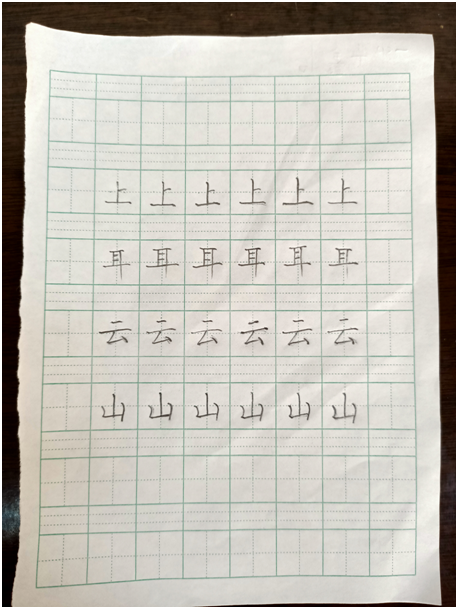 上上上上上上
耳耳耳耳耳耳
云云云云云云
山山山山山山